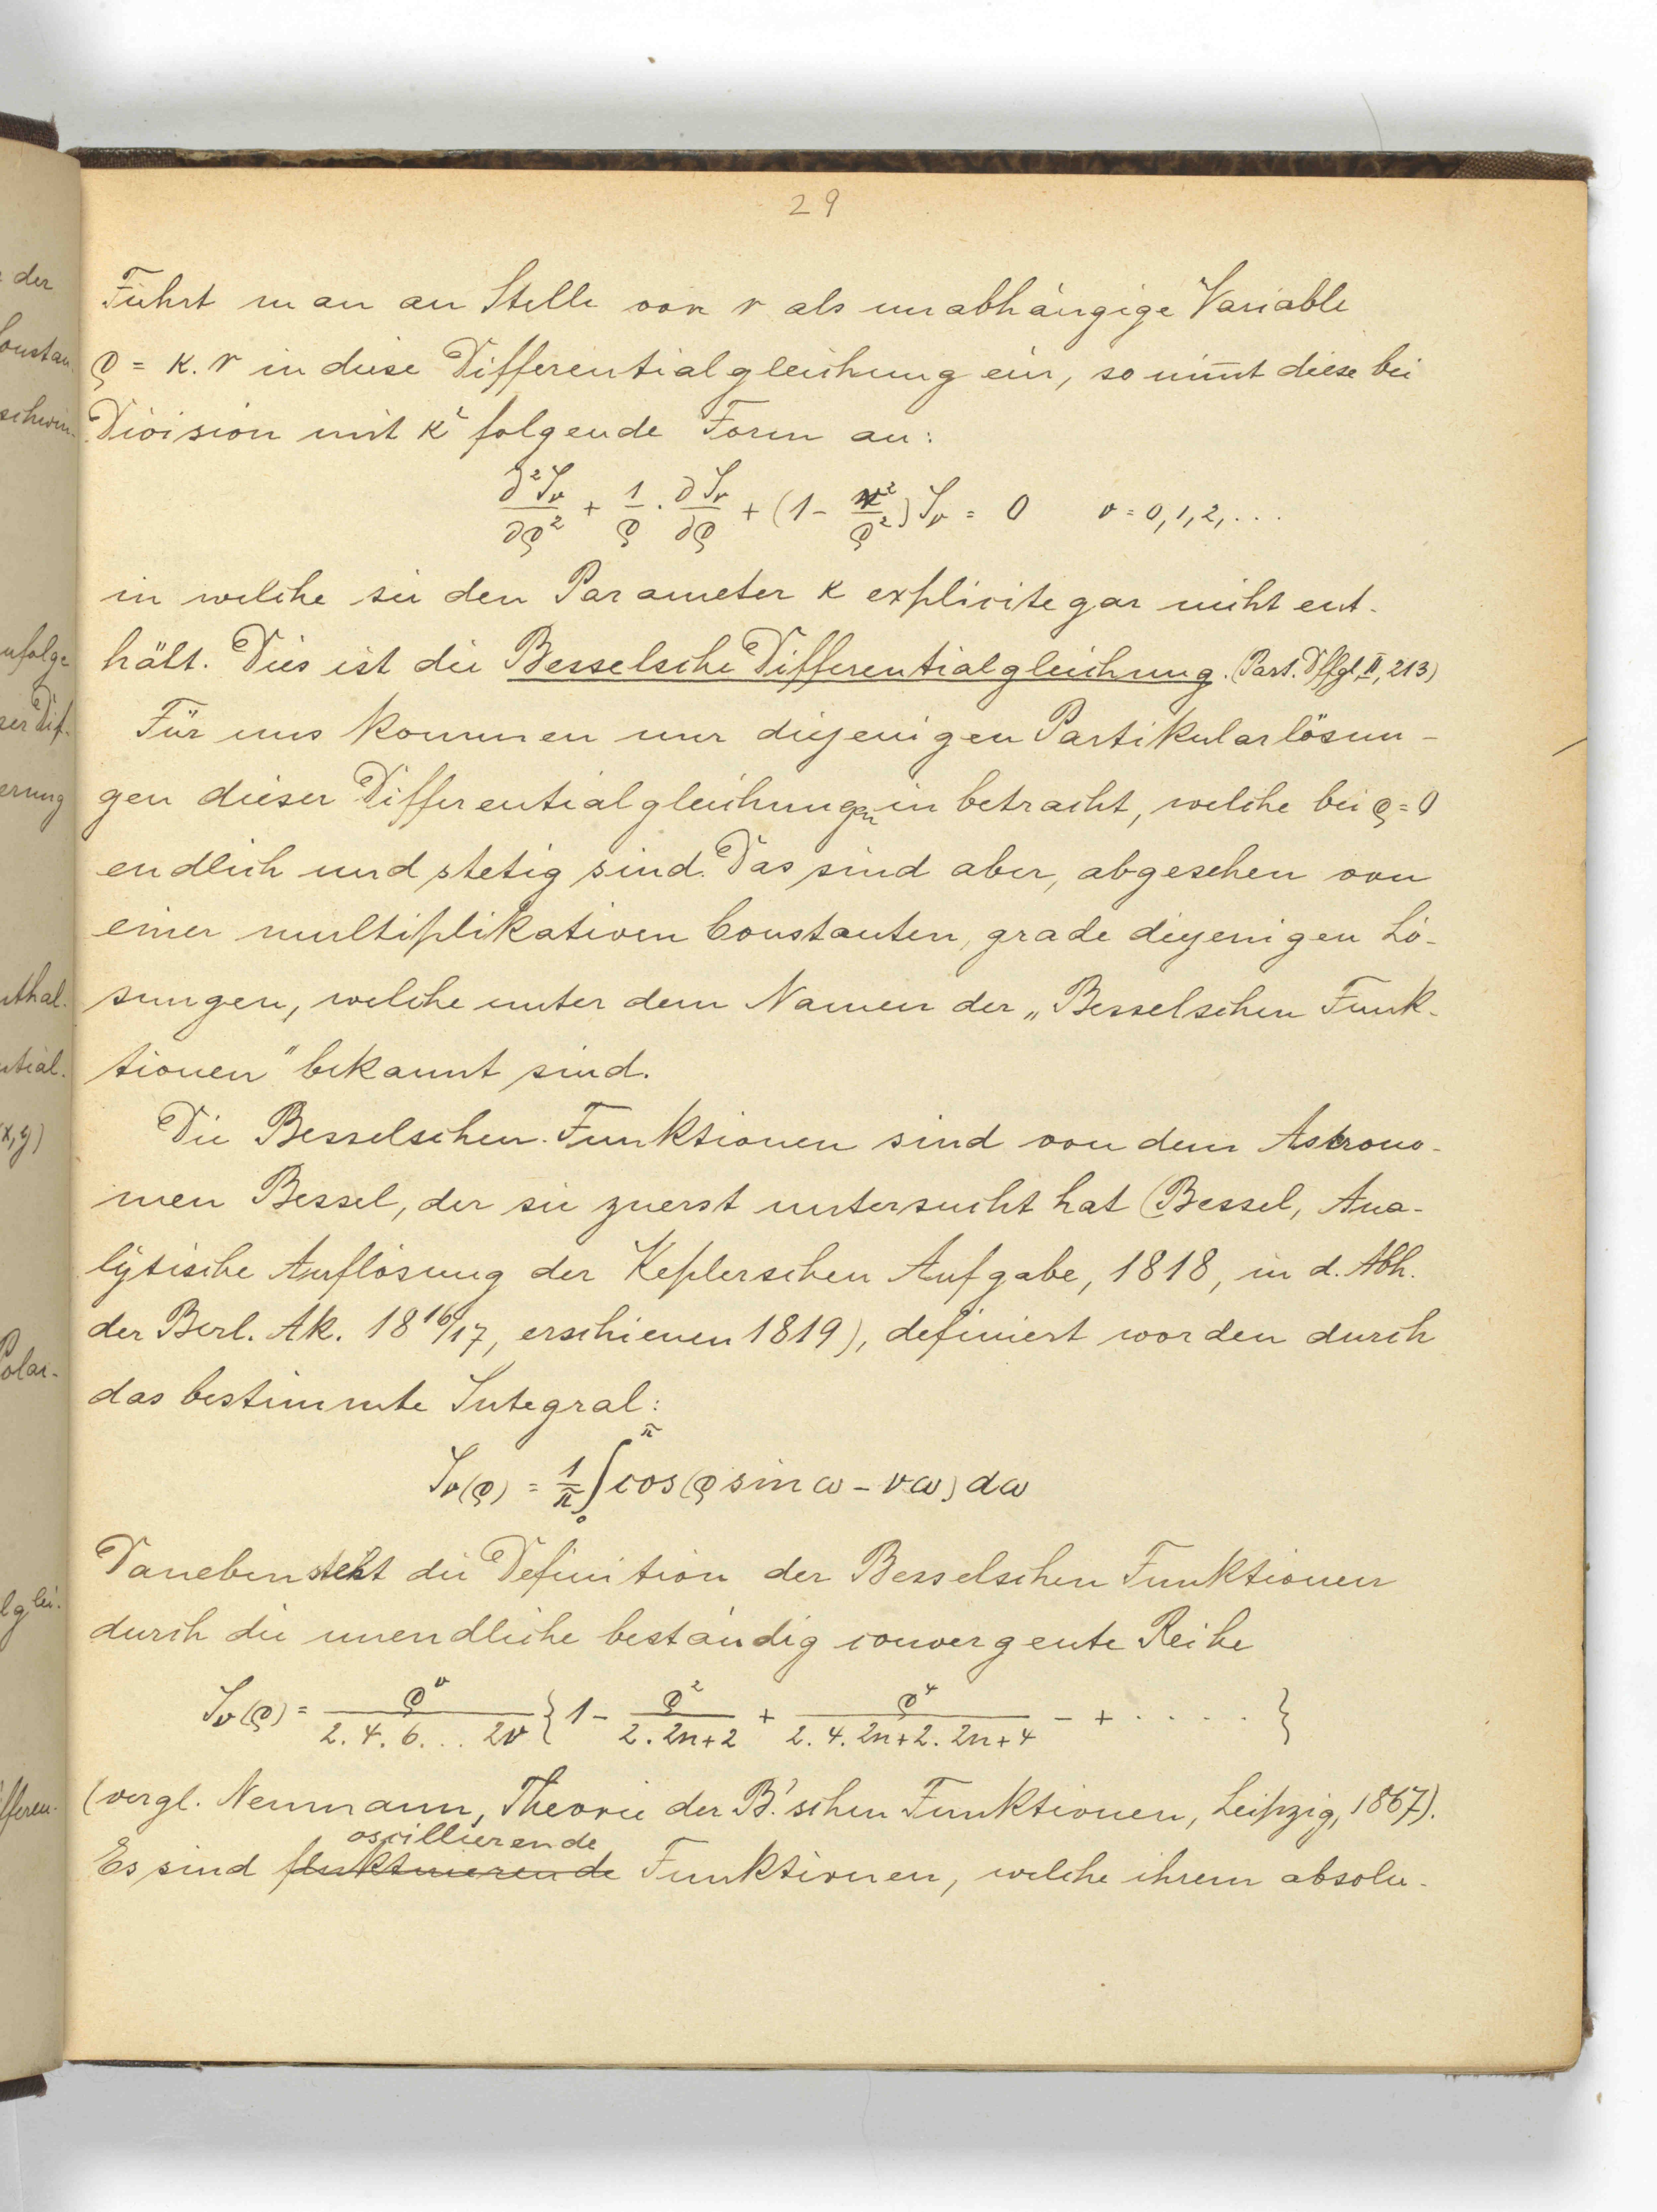 29
Führt man an Stelle von r als unabhängige Variable
ρ = k.r in diese Differentialgleichung ein, so nim̅t diese bei
Division mit k² folgende Form an:
∂²J_ν/∂ρ² + 1/ρ · ∂J_ν/∂ρ + (1 - ν²/ρ²) J_ν = 0 ν = 0,1,2,...
in welche sie den Parameter k explicite gar nicht ent-
hält. Dies ist die Besselsche Differentialgleichung. (Part. Dffgl. II, 213)
Für uns kommen nur diejenigen Partikularlösun-
gen dieser Differentialgleichungen in betracht, welche bei ρ = 0
endlich und stetig sind. Das sind aber, abgesehen von
einer multiplikativen Constanten, grade diejenigen Lö-
sungen, welche unter dem Namen der „Besselschen Funk-
tionen" bekannt sind.
Die Besselschen Funktionen sind von dem Astrono-
men Bessel, der sie zuerst untersucht hat (Bessel, Ana-
lytische Auflösung der Keplerschen Aufgabe, 1818, in d. Abh.
der Berl. Ak. 1816/17, erschienen 1819), definiert worden durch
das bestimmte Integral:
J_ν(ρ) = 1/π ∫₀^π cos(ρ sin ω - νω) dω
Daneben steht die Definition der Besselschen Funktionen
durch die unendliche beständig convergente Reihe
J_ν(ρ) = ρ^ν/(2.4.6...2ν) { 1 - ρ²/(2.2n+2) + ρ⁴/(2.4.2n+2.2n+4) - + ..... }
(vergl. Neumann, Theorie der B.'schen Funktionen, Leipzig, 1867).
oscillierende
Es sind fluktuierende Funktionen, welche ihrem absolu-
der
Constan-
schwin-
zufolge
ser Dif-
erung
nthal-
ntial-
(x,y)
Polar-
lglei-
ifferen-